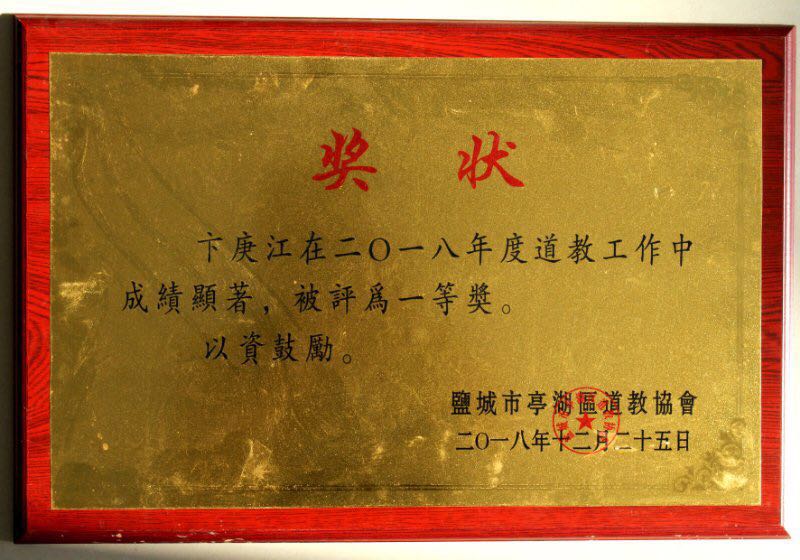 奖 状
卞庚江在二〇一八年度道教工作中
成績顯著，被評爲一等獎。
以資鼓勵。
鹽城市亭湖區道教協會
二〇一八年十二月二十五日